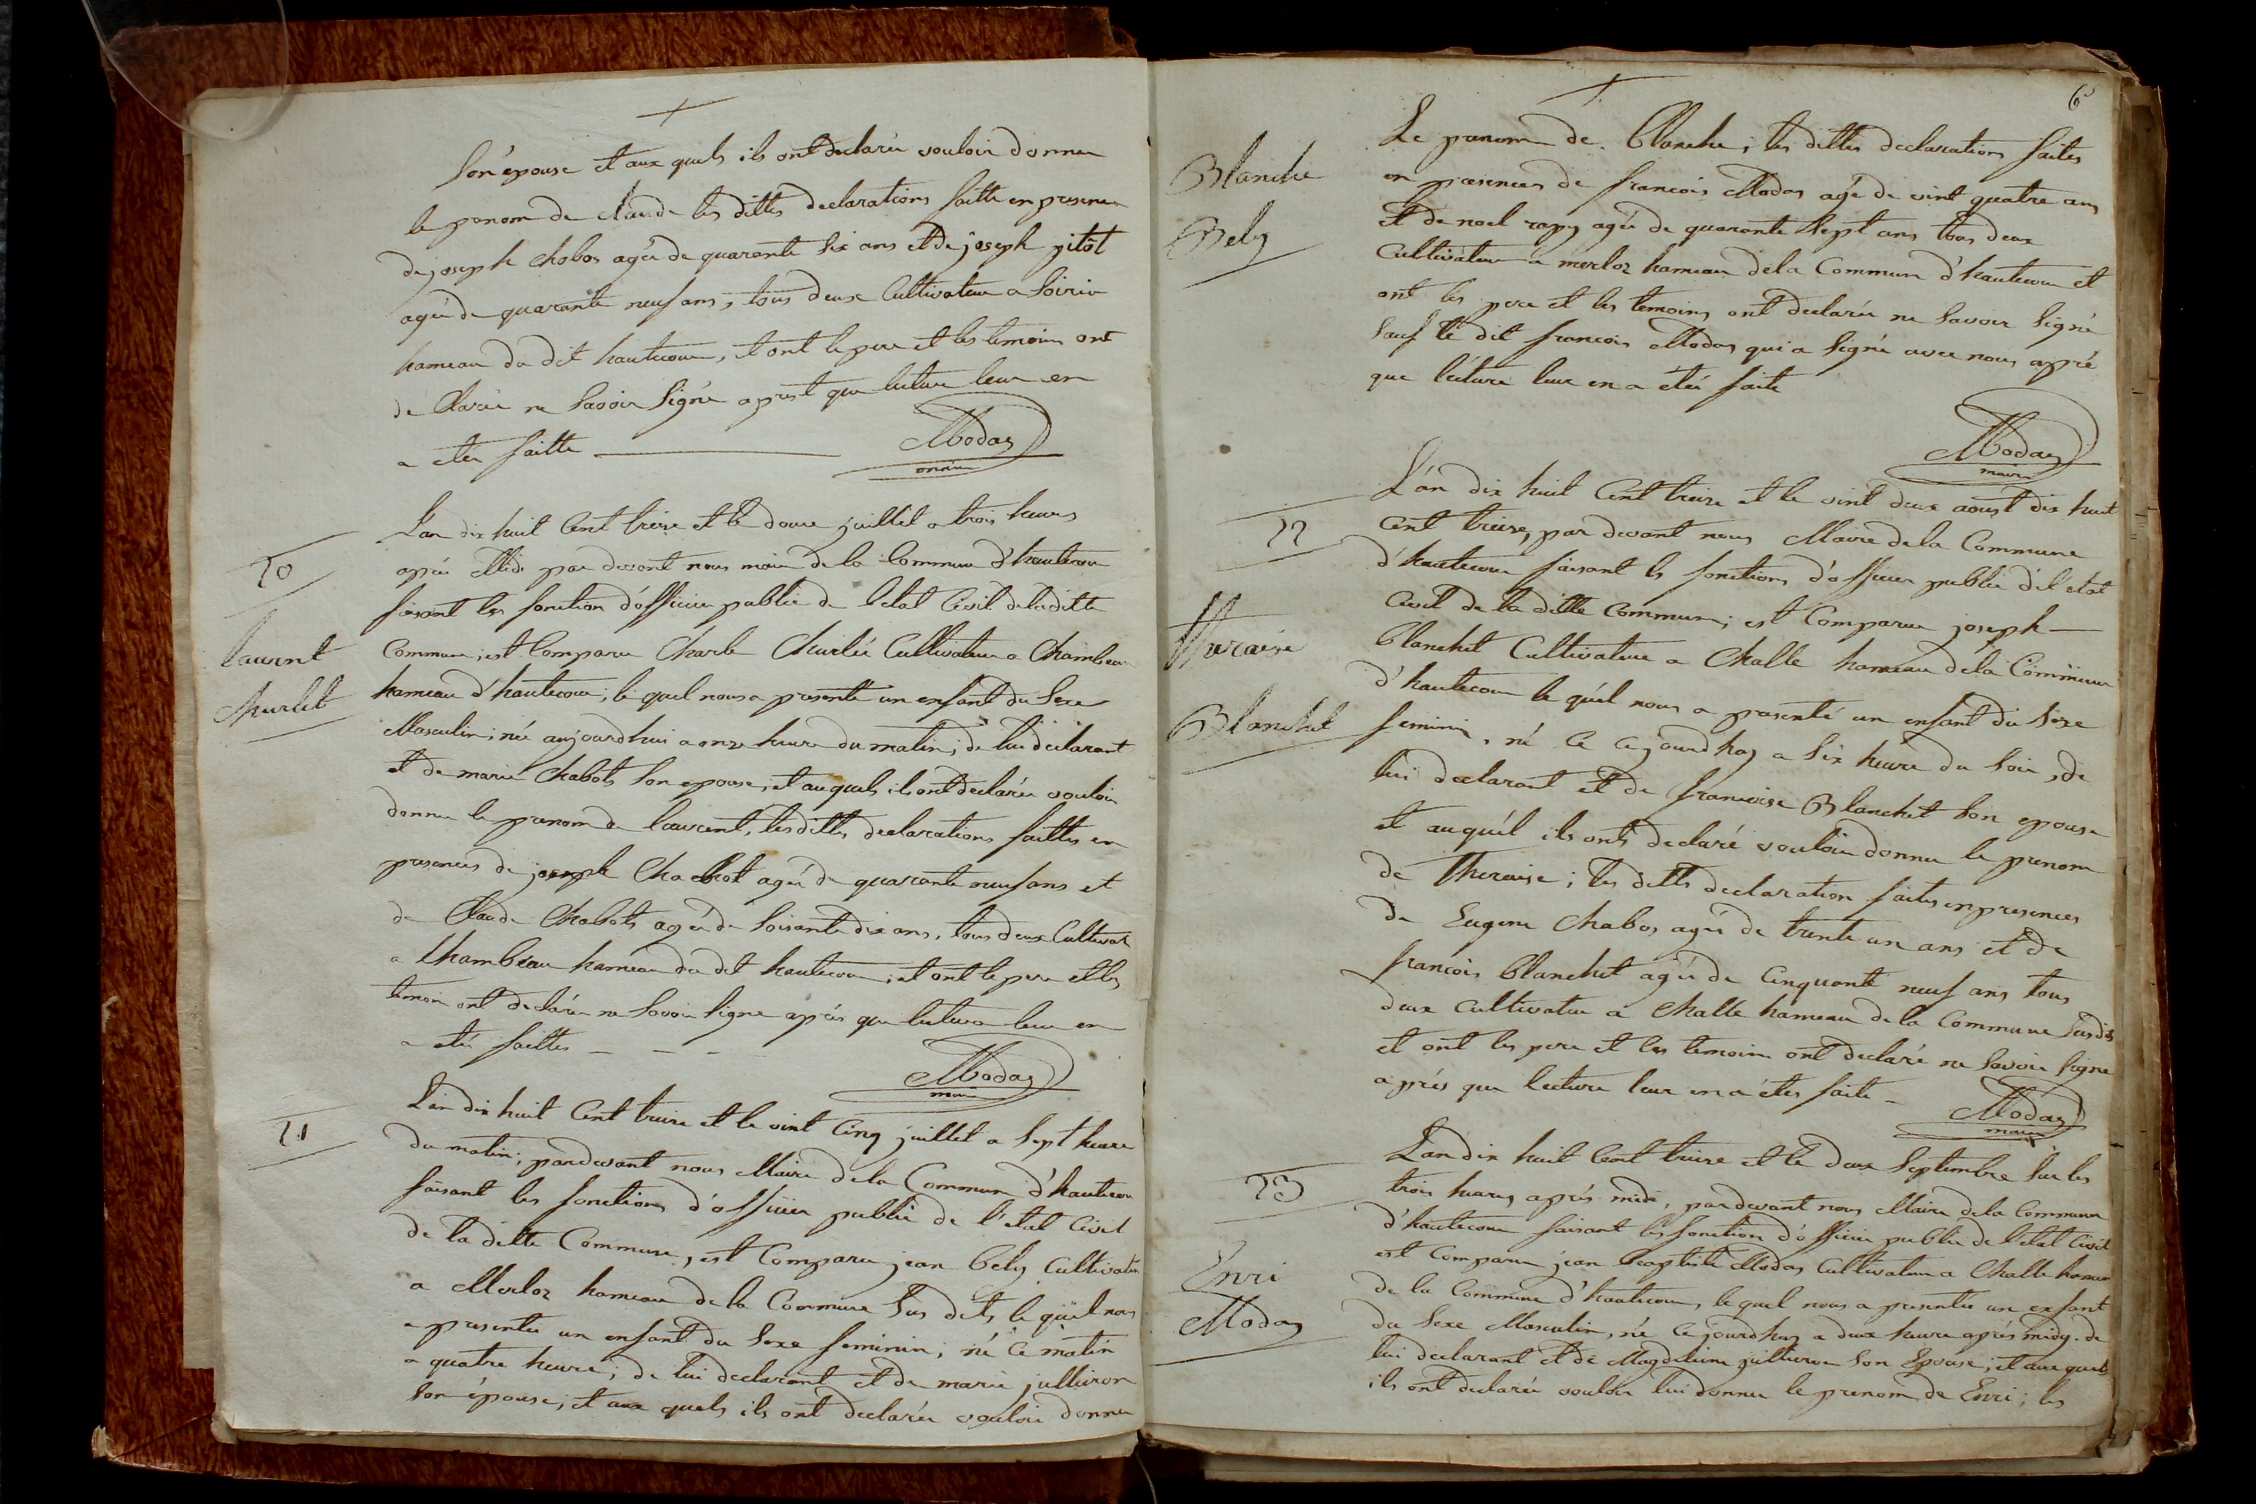 Son épouse et aux quels ils ont declarée vouloir donner
le prenom de claude les dittes declarations faitte en presence
de joseph chabos agée de quarante six ans et de joseph pitôt
agée de quarante neuf ans, tous deux Cultivateur a Soiria
hameau du dit hautecour, et ont le pere et les temoins ont
dé Clarée ne Savoir Signée aprest que lecture leur en
a etée faitte
Moday
maire
L'an dix huit Cent treize et le douze juillet a trois heures
aprés Midi par devant nous maire de la Commune d'hautecour
faisant les fonction d'officier public de l'etat Civil de la ditte
20
Commune, est Comparu Charle Churlée Cultivateur a Chambeau
laurent
hameau d'hautecour, le quel nous a presenté un enfant du Sexe
Churlet
Masculin, née aujourdhui a onze heure du matin, de lui declarant
et de marie chabots Son epouse, et auquels ils ont declarée vouloir
donner le prenom de laurent, les dittes declarations faittes en
presences de joseph Chabot agée de quarante neuf ans et
de Claude Chabots agée de Soisante dix ans, tous deux Cultivat
a Chambeau hameau du dit hautecour, et ont le pere et les
temoin ont declarée ne Savoir Signe aprés que lecture leur en
a etée faittes
Moday
maire
L'an dix huit Cent treize et le vint Cinq juillet a Sept heure
21
du matin, par devant nous Maire de la Commune d'hautecour
faisant les fonctions d'officier public de l'etat Civil
de la ditte Commune, est Comparu jean bely Cultivateur
a Merloz hameau de la Commune Sus dits, le quel nous
a presentée un enfant du Sexe feminin, né ce matin
a quatre heure, de lui declarant et de marie jullieron
Son épouse, et aux quels ils ont declarée vouloir donner
6
Le prenom de Blanche; les dittes declarations faites
Blanche
en presences de francois Moday agé de vint quatre ans
Bely
et de noel rapy agée de quarante Sept ans tous deux
Cultivateur a merloz hameau de la Commune d'hautecour et
ont les pere et les temoins ont declarée ne Savoir Signé
Sauf le dit francois Moday qui a Signée avec nous aprés
que lecture leur en a étéé faite
Moday
maire
L'an dix huit Cent treize et le vint deux aoust dix huit
22
Cent treize, par devant nous Maire de la Commune
d'hautecour faisant les fonctions d'officier public d'el etat
Civil de la ditte Commune; est Comparue joseph
Theraise
Blanchet Cultivateur a Challe hameau de la Commune
d'hautecour le quel nous a presenté un enfant du Sexe
Blanchet
feminin, né ce cejourdhoy a Six heure du Soir, de
lui declarant et de francoise Blanchet Son epouse
et auquel ils ont declaré vouloir donner le prenom
de Theraise; les ditts declaration faites en presences
de Eugene Chabos agée de trente un ans et de
francois Blanchet agée de Cinquante neuf ans tous
deux Cultivateur a Challe hameau de la Commune Sus dit
et ont les pere et les temoin ont declaré ne Savoir Signe
aprés que lecture leur en a étes faite
Moday
maire
L'an dix huit Cent treize et le deux Septembre Sur les
23
trois heures aprés midi, par devant nous Maire de la Commune
d'hautecour faisant les fonction d'officier public de l'etat Civil
Enri
est Comparu jean Baptiste Moday Cultivateur a Challe hameau
de la Commune d'hautecour, le quel nous a presentée un enfant
Moday
du Sexe Masculin, né Cejourdhoy a deux heure aprés midy, de
lui declarant et de Magdeleine jullieron Son Epouse; et aux quels
ils ont declarée vouloir lui donner le prenom de Enri; les